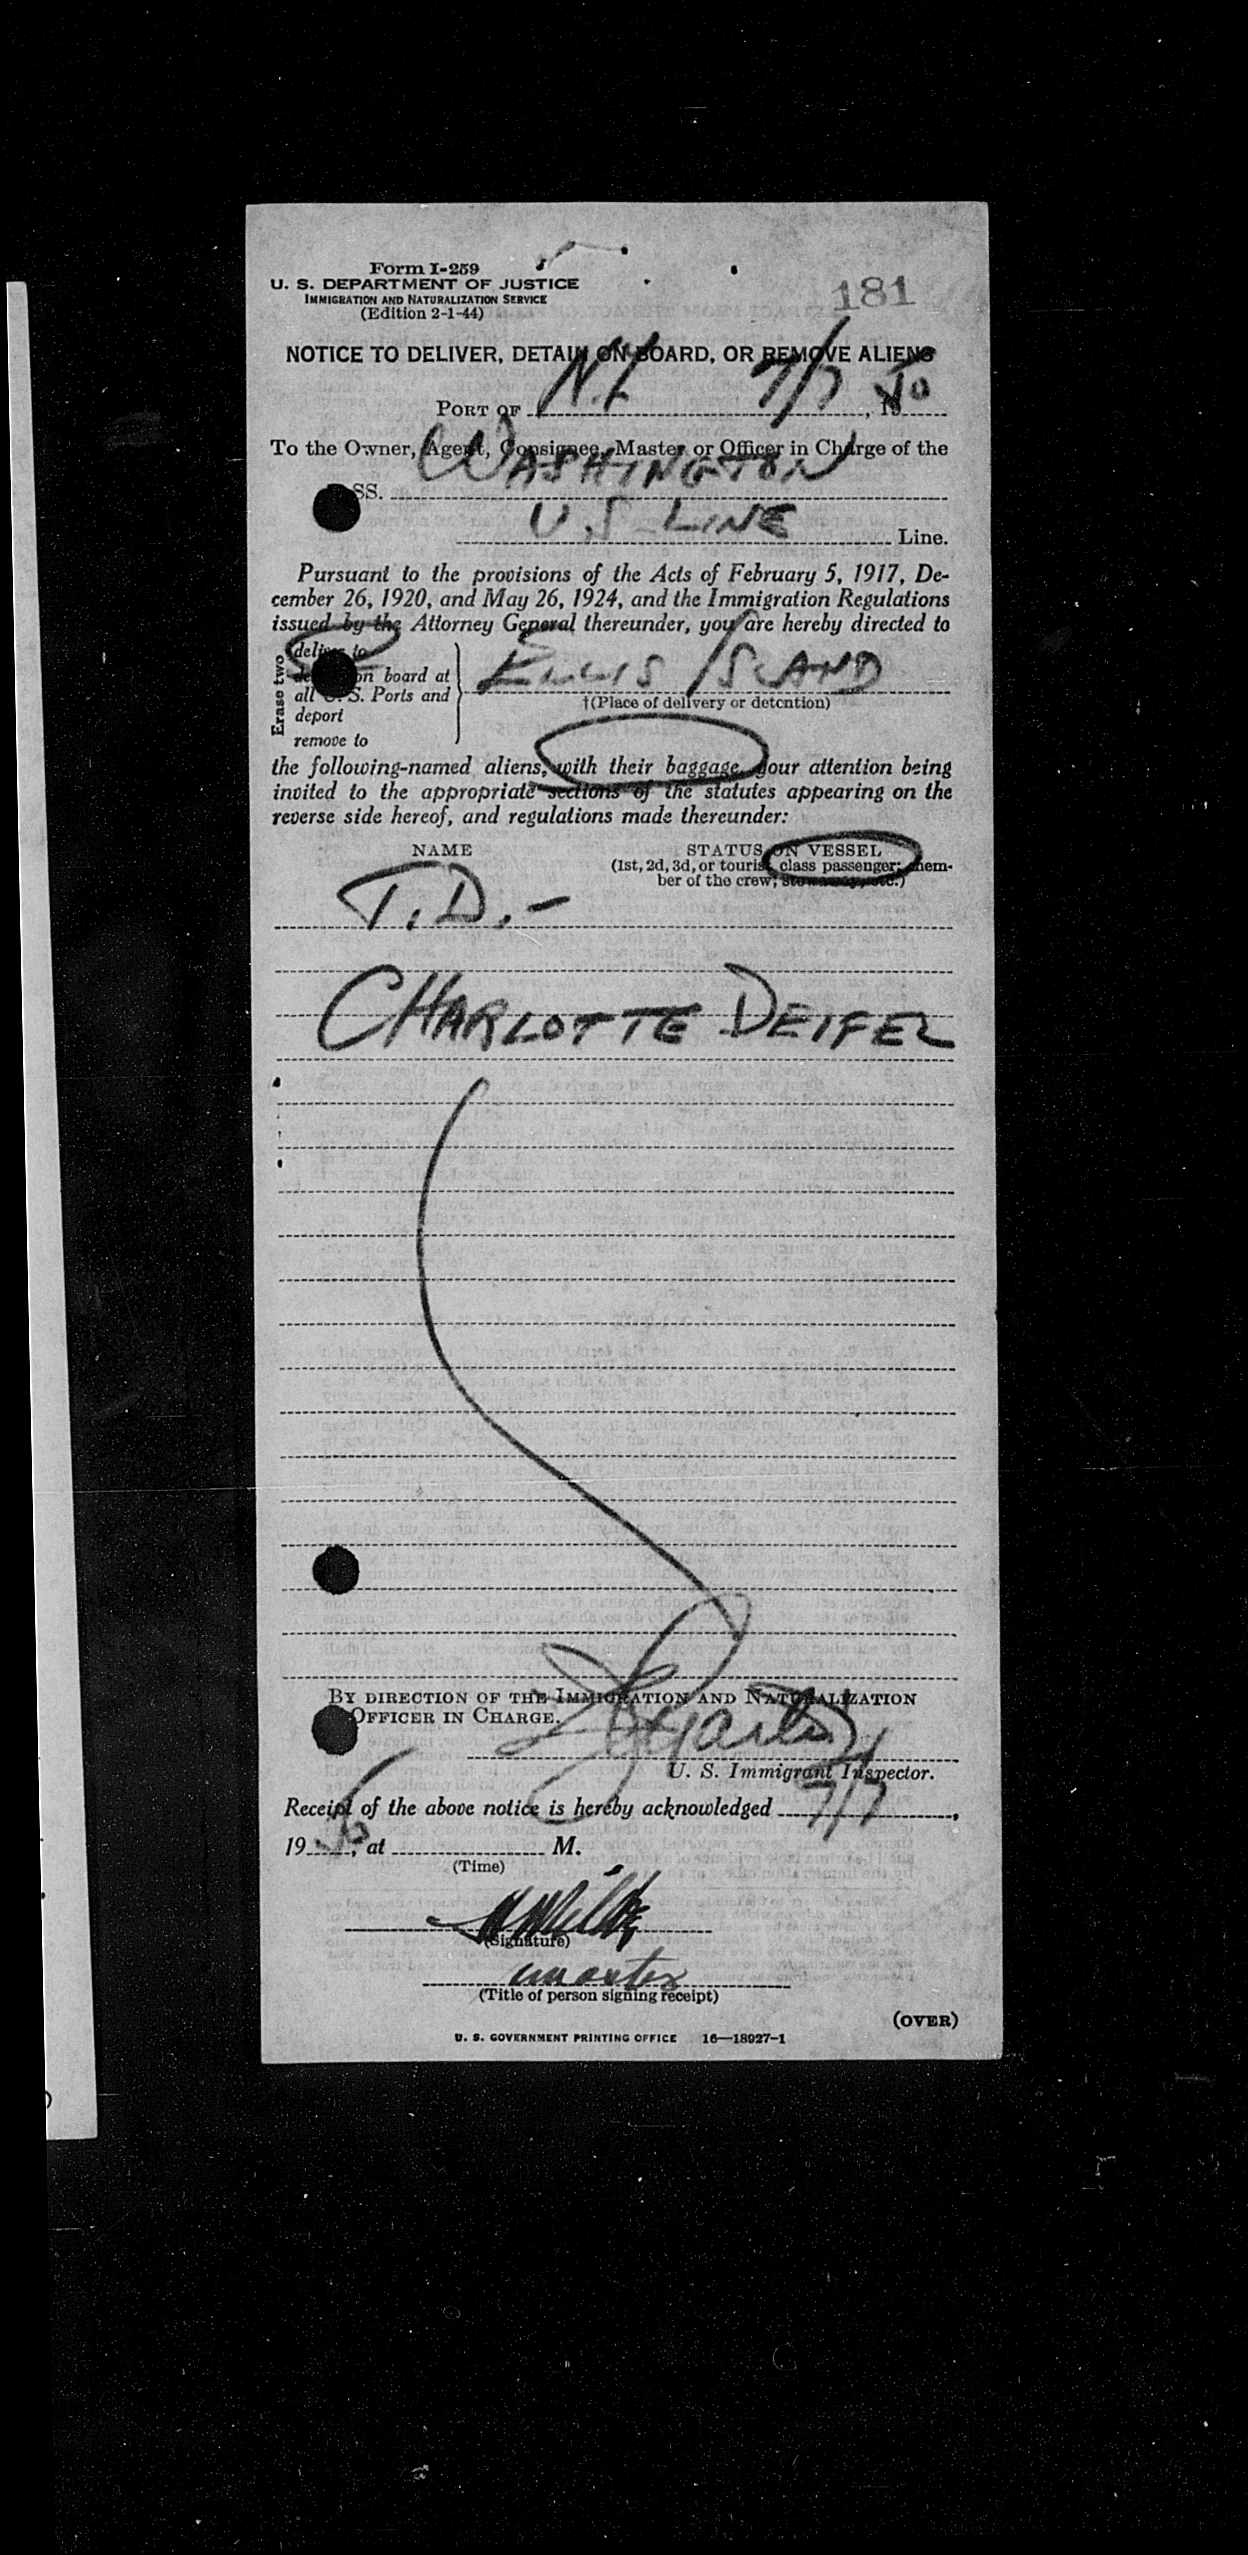 Form I-259
U. S. DEPARTMENT OF JUSTICE
IMMIGRATION AND NATURALIZATION SERVICE
(Edition 2-1-44)
181
NOTICE TO DELIVER, DETAIN ON BOARD, OR REMOVE ALIENS
PORT OF N.Y. 7/7, 1950
To the Owner, Agent, Consignee, Master or Officer in Charge of the
SS. WASHINGTON
U.S LINE Line.
Pursuant to the provisions of the Acts of February 5, 1917, De-
cember 26, 1920, and May 26, 1924, and the Immigration Regulations
issued by the Attorney General thereunder, you are hereby directed to
Erase two
deliver to
on board at
all U. S. Ports and
deport
remove to
ELLIS ISLAND
†(Place of delivery or detention)
the following-named aliens, with their baggage, your attention being
invited to the appropriate sections of the statutes appearing on the
reverse side hereof, and regulations made thereunder:
NAME STATUS ON VESSEL
(1st, 2d, 3d, or tourist class passenger; mem-
ber of the crew; stowaway, etc.)
T.D.-
CHARLOTTE DEIFEL
BY DIRECTION OF THE IMMIGRATION AND NATURALIZATION
OFFICER IN CHARGE.
U. S. Immigrant Inspector.
Receipt of the above notice is hereby acknowledged 7/7,
1950, at M.
(Time)
(Signature)
master
(Title of person signing receipt)
(OVER)
U. S. GOVERNMENT PRINTING OFFICE 16—18927-1